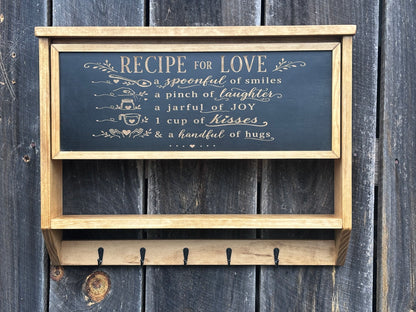 RECIPE FOR LOVE
a spoonful of smiles
a pinch of laughter
a jarful of JOY
1 cup of kisses
& a handful of hugs